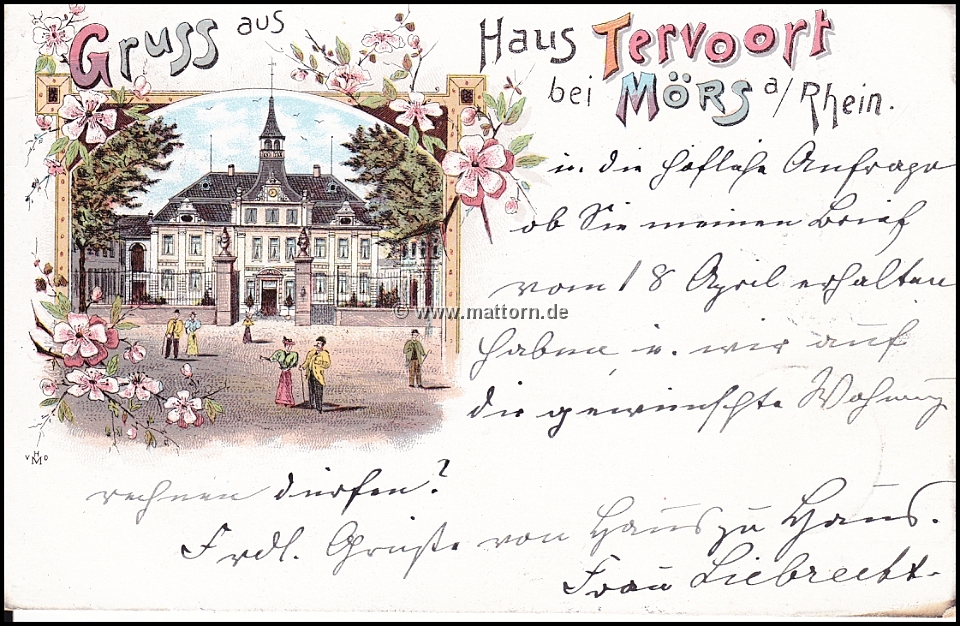 Gruss aus
Haus Tervoort
bei Mörs a/Rhein.
u. die höfliche Anfrage
ob Sie meinen Brief
© www.mattorn.de
vom 18 April erhalten
haben u. wir auf
die gewünschte Wohnung
VHMD
rechnen dürfen?
Frdl. Grüße von Haus zu Haus.
Frau Liebrecht.